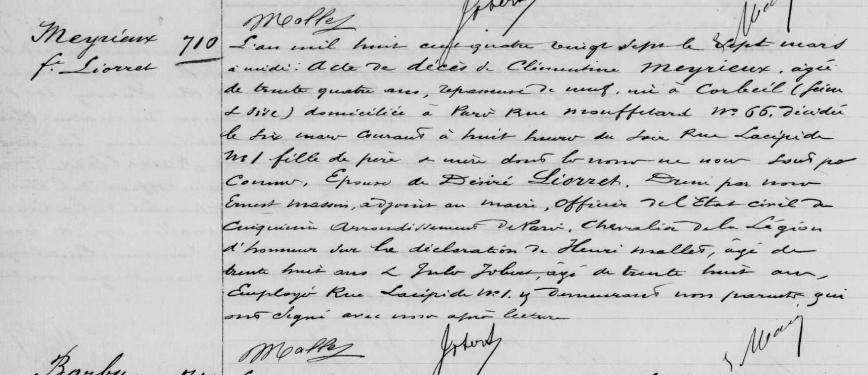 Mallet Jobert
Meyrieux 710
fe Liorret
L'an mil huit cent quatre vingt sept le sept mars
à midi. Acte de décès de Clémentine Meyrieux, âgée
de trente quatre ans, repasseuse de neuf, née à Corbeil (Seine
& Oise) domiciliée à Paris Rue Mouffetard No 66, décédée
le six mars courant à huit heures du soir Rue Lacépède
No 1 fille de père & mère dont les noms ne nous sont pas
connus, Epouse de Désiré Liorret. Dressé par nous
Ernest Massin, adjoint au maire, Officier de l'Etat civil du
Cinquième Arrondissement de Paris, Chevalier de la Légion
d'honneur sur la déclaration de Henri Mallet, âgé de
trente huit ans & Jules Jobert, âgé de trente huit ans,
Employés Rue Lacépède No 1. y demeurant non parents qui
ont signé avec nous après lecture
Mallet Jobert
Barbu